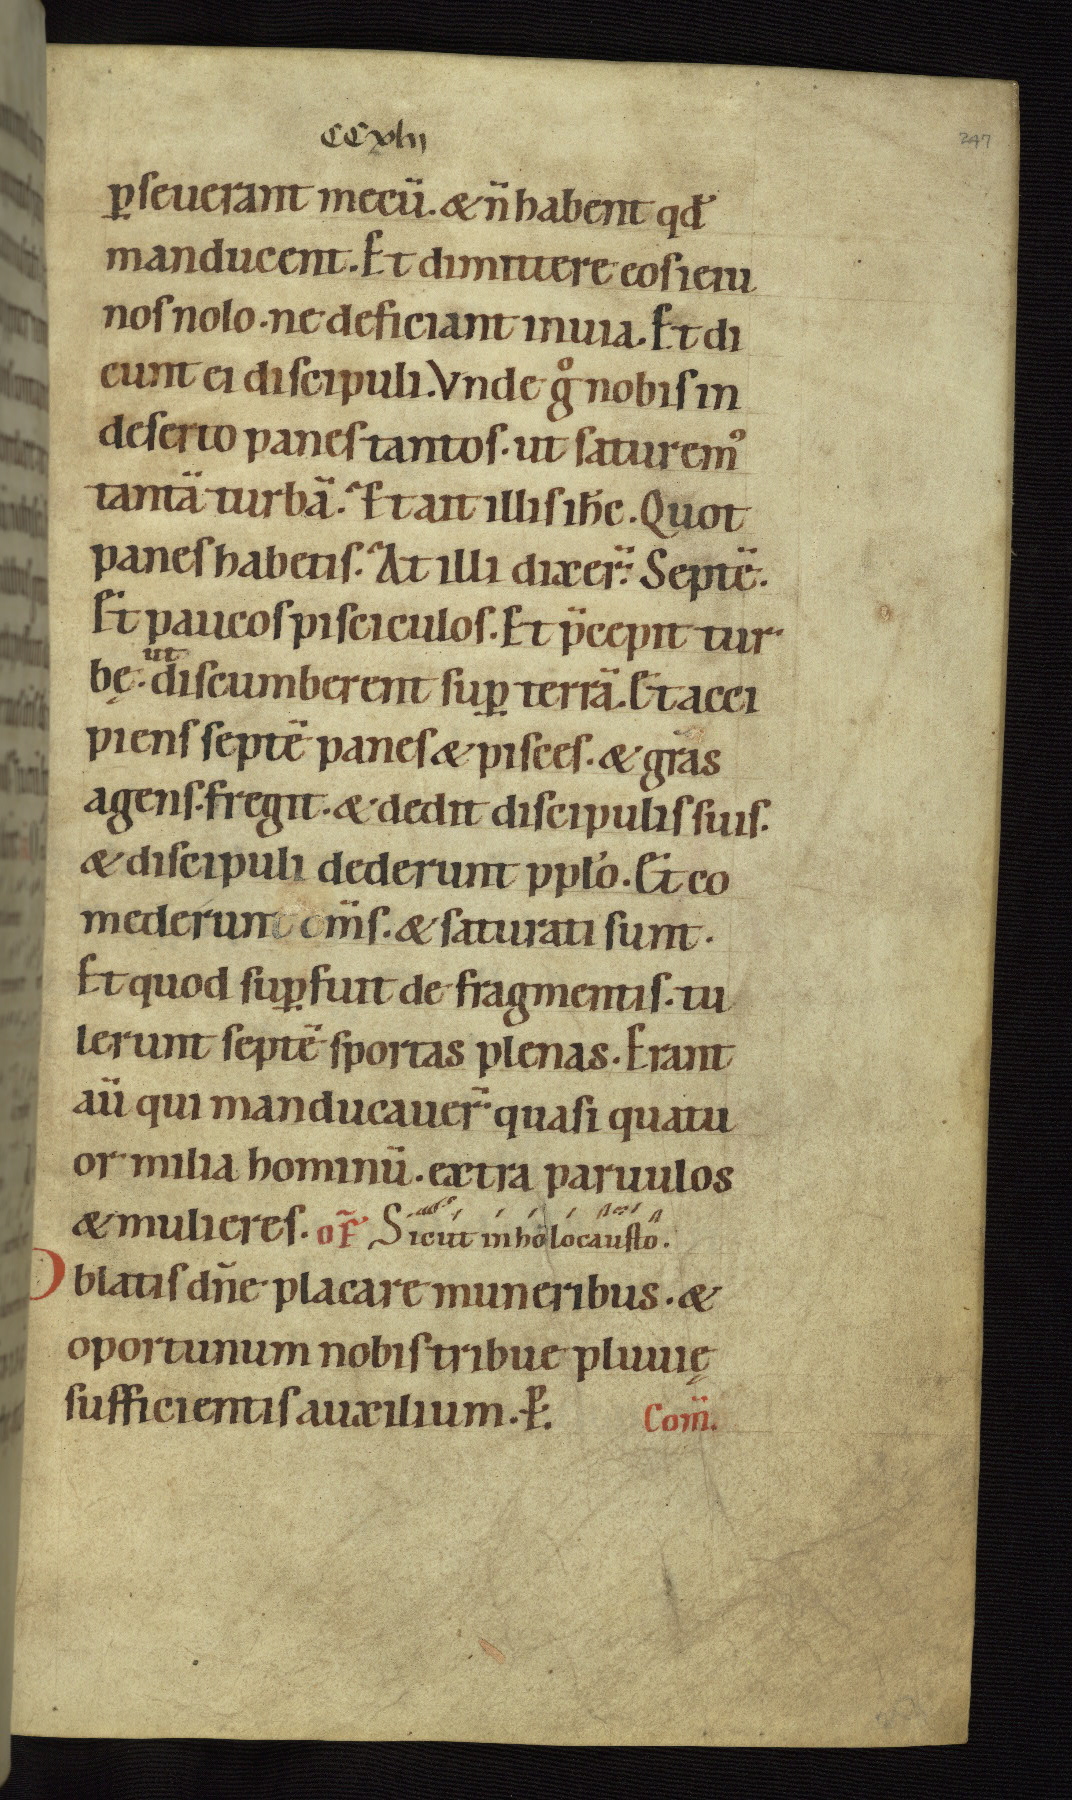 CCxliij
247
ꝑseuerant mecū. & n̄ habent qđ
manducent. Et dimittere eos ieiu
nos nolo. ne deficiant in uia. Et di
cunt ei discipuli. Vnde gͦ nobis in
deserto panes tantos. ut saturemꝰ
tantā turbā. Et ait illis ihc̄. Quot
panes habetis. At illi dixer̄. Septē.
Et paucos pisciculos. Et p̄cepit tur
bę. ut discumberent suꝑ terrā. Et acci
piens septē panes & pisces. & gr̄as
agens. fregit. & dedit discipulis suis.
& discipuli dederunt pplo. Et co
mederunt om̄s. & saturati sunt.
Et quod suꝑfuit de fragmentis. tu
lerunt septē sportas plenas. Erant
aū qui manducauer̄ quasi quatu
or milia hominū. extra paruulos
& mulieres. of̄ Sicut in holocausto.
Oblatis dn̄e placare muneribus. &
oportunum nobis tribue pluuię
sufficientis auxilium. P. Com̄.